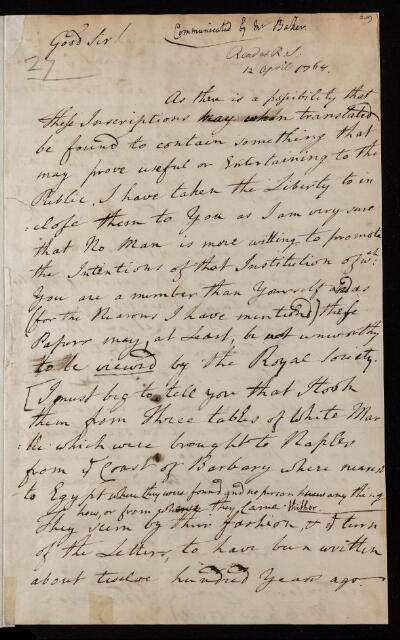 Communicated by Mr Baker.
Good Sir
27
Read at R.S.
12 April 1764.
As there is a possibility that
these Inscriptions may when translated
be found to contain something that
may prove useful or Entertaining to the
Public, I have taken the Liberty to in
:close them to You as I am very sure
that No Man is more willing to promote
the Intentions of that Institution of wch:
You are a member than Yourself and as
(for the Reasons I have mentiond) these
Papers may, at Least, be not unworthy
to be viewed by the Royal Society.
[I must beg to tell you that I took
them from Three tables of White Mar
:ble which were brought to Naples
from ye Coast of Barbary where nearest
to Egypt where they were found and no person knows any thing
how, or from whence they came thither.
They seem by their fashion, & ye turn
of the Letters, to have been written
about twelve hundred Years ago.